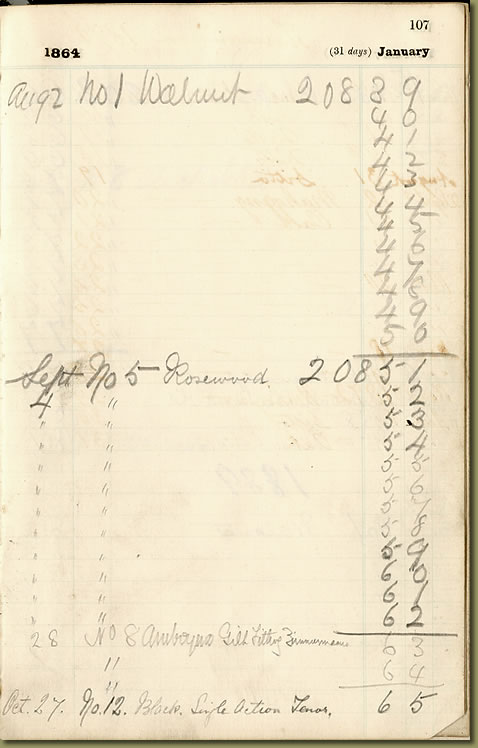 107
1864 (31 days) January
Aug 2 No 1 Walnut 208 3 9
4 0
4 1
4 2
4 3
4 4
4 5
4 6
4 7
4 8
4 9
5 0
Sept No 5 Rosewood. 208 5 1
4 " 5 2
" " 5 3
" " 5 4
" " 5 5
" " 5 6
" " 5 7
" " 5 8
" " 5 9
" " 6 0
" " 6 1
" " 6 2
28 No 8 Amboyna Gilt Fitting Zimmermann 6 3
" 6 4
Oct. 27. No. 12. Black. Single Action Tenor, 6 5